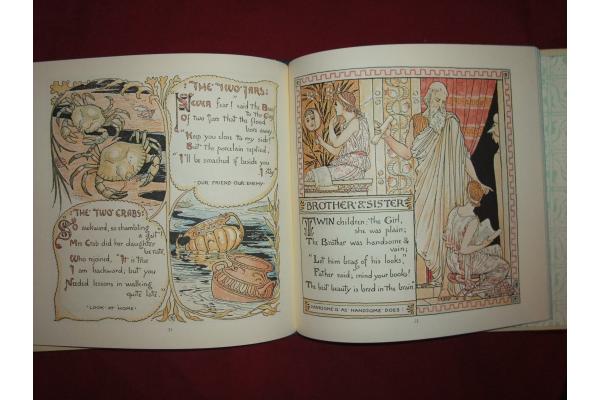 THE TWO JARS:
NEVER fear! said the Brass
to the Clay
Of two jars that the flood
bore away:
"Keep you close to my side!"
But the porcelain replied,
"I'll be smashed if beside you
I stay"
OUR FRIEND OUR ENEMY
THE TWO CRABS:
SO awkward, so shambling
a gait!
Mrs Crab did her daughter
be rate,
Who rejoined, "It is true
I am backward; but you
Needed lessons in walking
quite late."
"LOOK AT HOME"
BROTHER & SISTER
TWIN children: the Girl,
she was plain;
The Brother was handsome &
vain;
"Let him brag of his looks,"
Father said; mind your books!
The best beauty is bred in the brain"
HANDSOME IS AS HANDSOME DOES